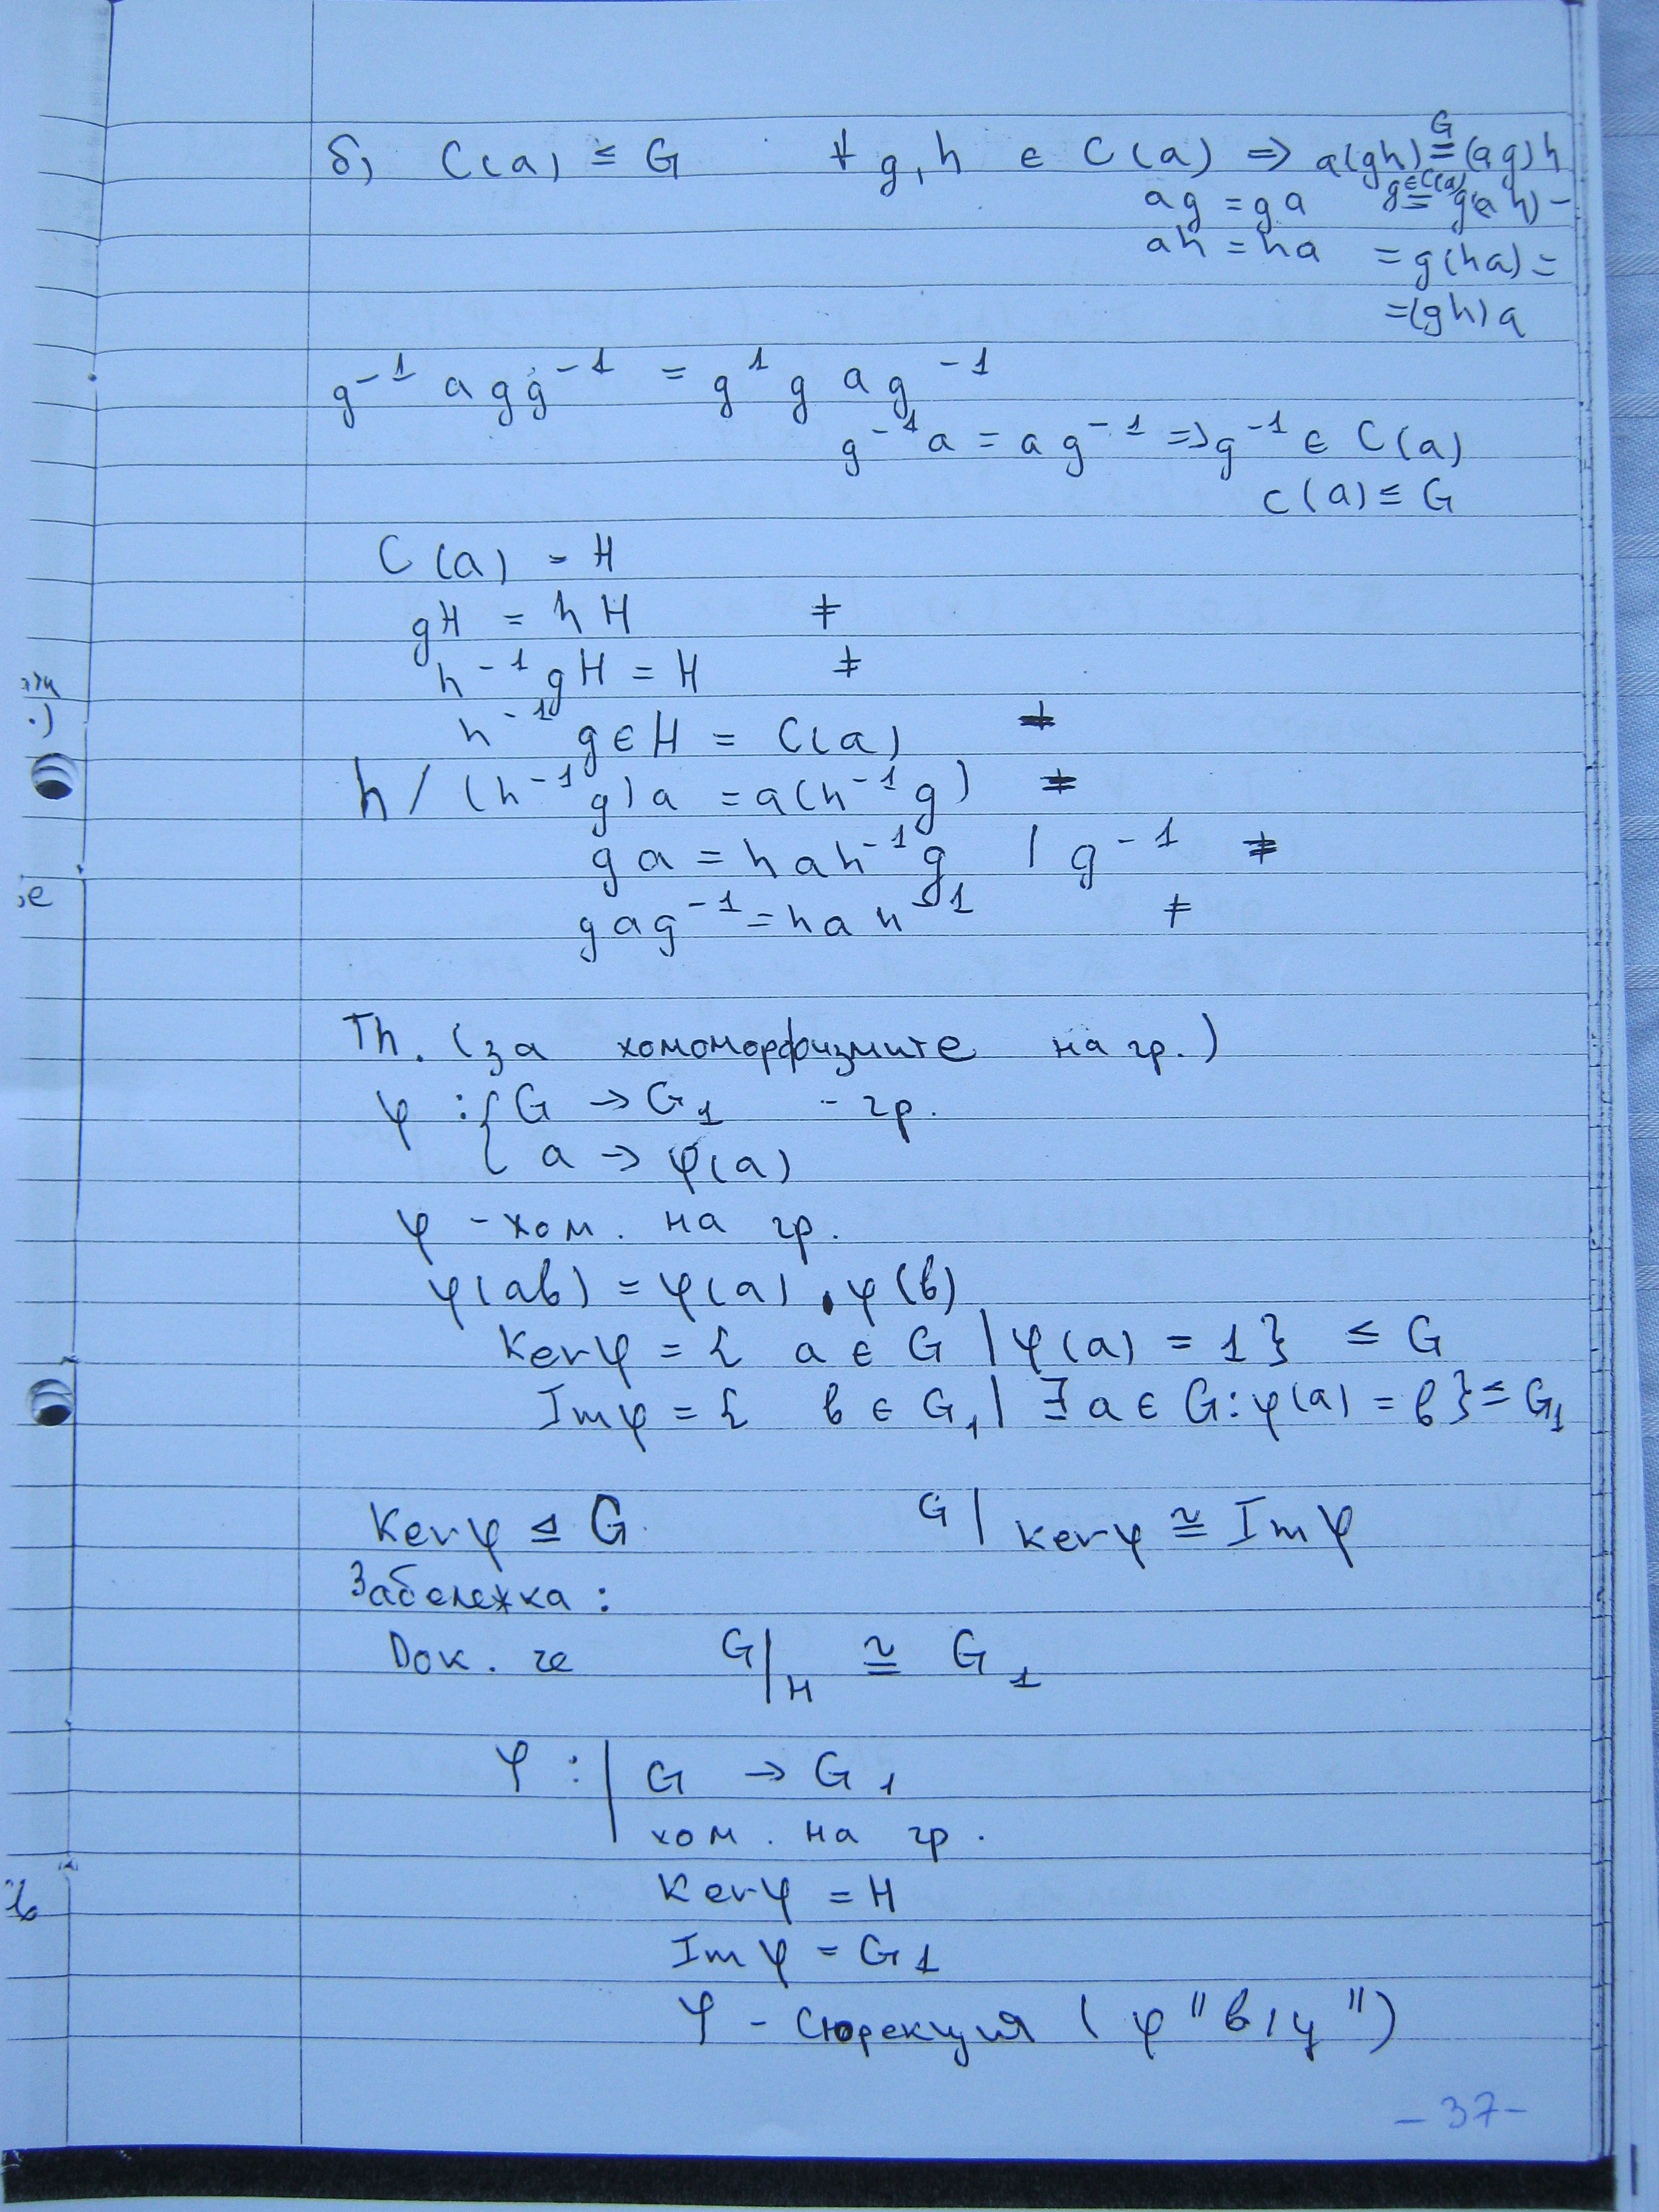 б) C(a) ≤ G ∀ g, h ∈ C(a) ⇒ a(gh) =ᴳ (ag)h
ag = ga =^{g∈C(a)} g(ah) =
ah = ha = g(ha) =
=(gh)a
g⁻¹ a g g⁻¹ = g¹ g a g⁻¹
g⁻¹a = a g⁻¹ ⇒ g⁻¹ ∈ C(a)
C(a) ≤ G
C(a) = H
gH = hH ≠
h⁻¹gH = H ≠
h⁻¹g ∈ H = C(a) ≠
h / (h⁻¹g)a = a(h⁻¹g) ≠
ga = hah⁻¹g | g⁻¹ ≠
gag⁻¹ = hah⁻¹ ≠
Th. (за хомоморфизмите на гр.)
φ : { G → G₁ - гр.
{ a → φ(a)
φ - хом. на гр.
φ(ab) = φ(a) . φ(b)
Kerφ = { a ∈ G | φ(a) = 1 } ≤ G
Imφ = { b ∈ G₁ | ∃ a ∈ G : φ(a) = b } ≤ G₁
Kerφ ⊴ G. G | Kerφ ≅ Imφ
Забележка :
Док. че G|H ≅ G₁
φ : | G → G₁
хом. на гр.
Kerφ = H
Imφ = G₁
φ - Сюрекция ( φ "в/у" )
- 37 -